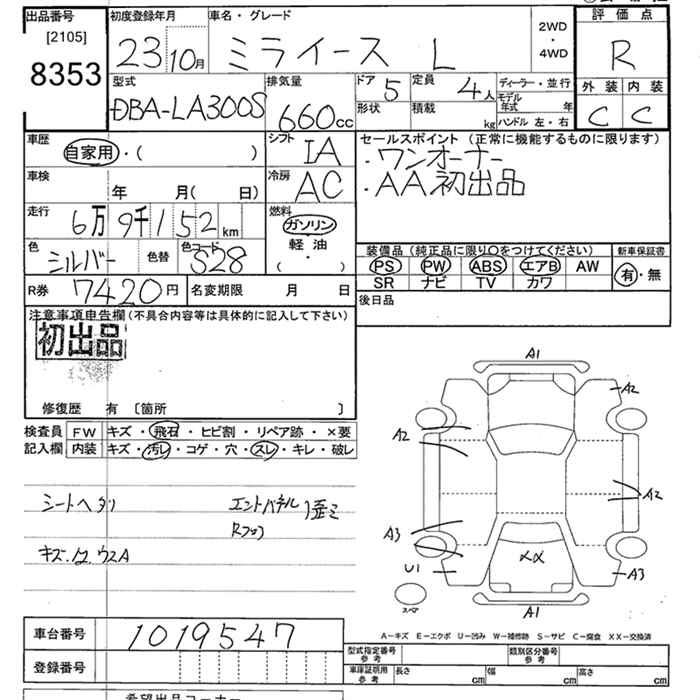 出品番号
[2105]
8353
初度登録年月
23 10月
車名・グレード
ミライース L
2WD
・
4WD
評価点
R
外装 内装
C C
型式
DBA-LA300S
排気量
660cc
ドア 5
形状
定員 4人
積載 kg
ディーラー・並行
モデル年式 年
ハンドル 左・右
車歴
自家用・( )
シフト IA
車検
年 月( 日)
冷房 AC
走行
6万9千152km
燃料
ガソリン
軽油
( )
色 シルバー
色替
色コード S28
R券 7420円
名変期限 月 日
セールスポイント (正常に機能するものに限ります)
・ワンオーナー
・AA初出品
装備品(純正品に限り○をつけてください)
PS PW ABS エアB AW
SR ナビ TV カワ
新車保証書
有・無
後日品
注意事項申告欄(不具合内容等は具体的に記入して下さい)
初出品
修復歴 有 〔箇所 〕
検査員記入欄
FW キズ・飛石・ヒビ割・リペア跡・×要
内装 キズ・汚レ・コゲ・穴・スレ・キレ・破レ
シートヘタリ
エンドパネル歪ミ
Rフロア
キズ.凹.ウスA
A1
A2
A2
A2
A3
U1
A3
XX
A1
スペア
A−キズ E−エクボ U−凹み W−補修跡 S−サビ C−腐食 XX−交換済
車台番号 1019547
登録番号
型式指定番号 参考
類別区分番号 参考
車庫証明用 参考
長さ cm
幅 cm
高さ cm
希望出品コーナー